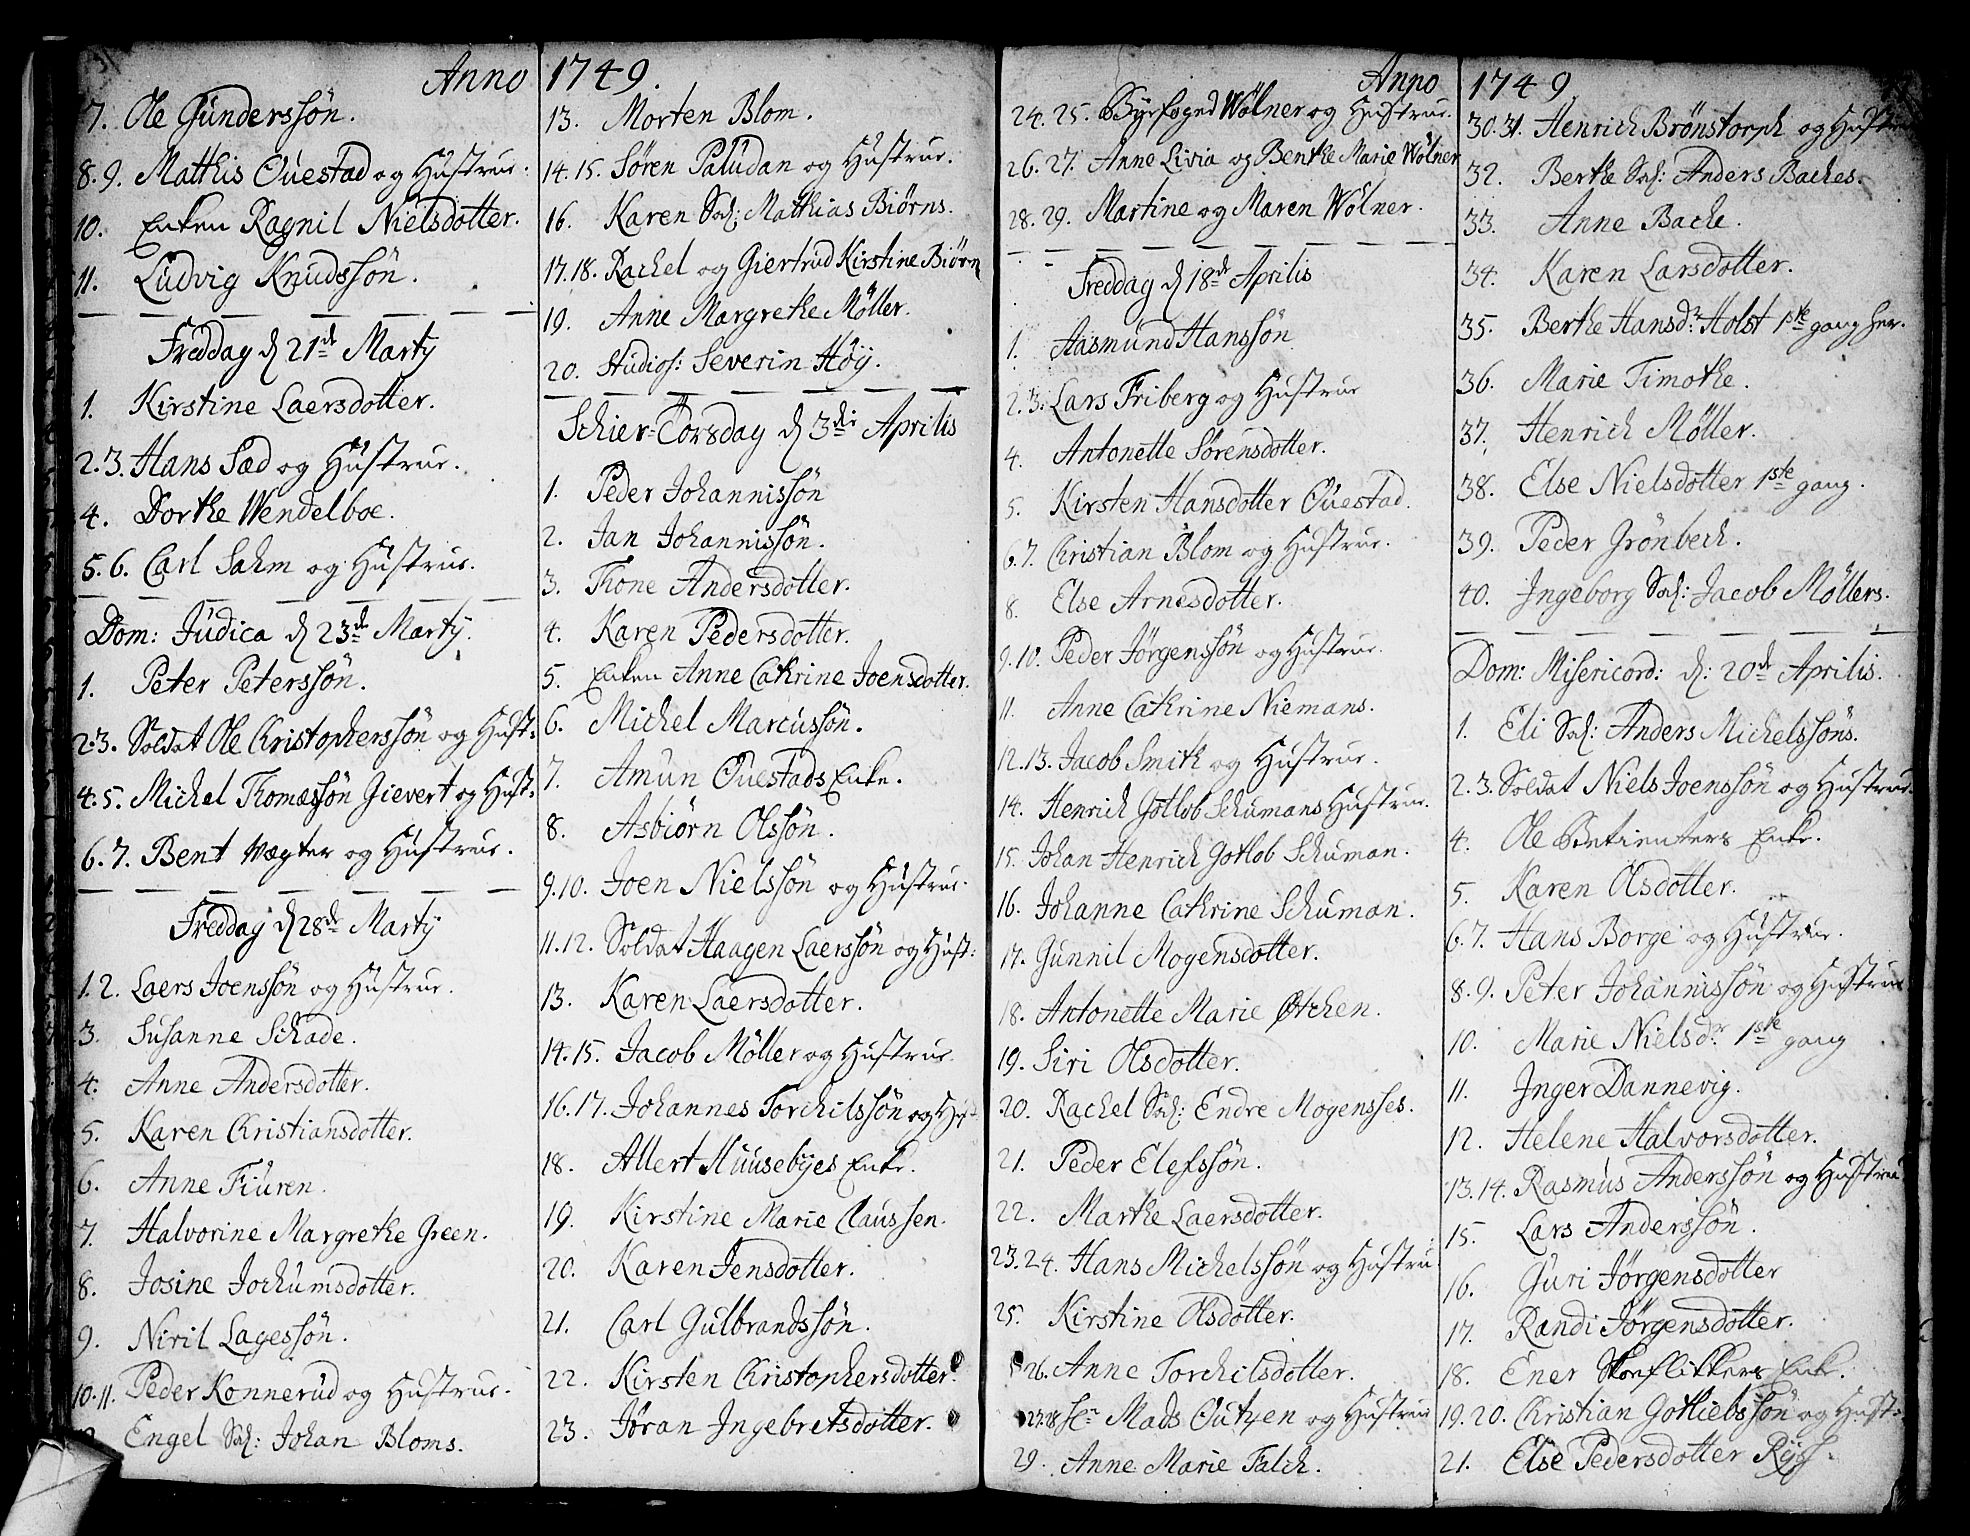 Anno 1749.
7. Ole Gúndersſón.
8. 9. Matthis Óuestad og Hústrue.
10. Enken Ragnil Nielsdotter.
11. Lúdvig Knúdsſón.
Freddag d 21de Marty
1. Kirstine Laersdotter.
2. 3. Hans Sæd og Hústrue.
4. Dorthe Wendelboe.
5. 6. Carl Sahm og Hústrue.
Dom: Júdica d 23de Marty.
1. Peter Petersſón.
2. 3. Soldat Ole Christophersſón og Hust:
4. 5. Michel Thomæsſón Gievert og Hust:
6. 7. Bent Vægter og Hústrue.
Freddag d 28de Marty
1. 2. Laers Joensſón og Hústrue.
3. Susanne Schade.
4. Anne Andersdotter.
5. Karen Christiansdotter.
6. Anne Fiúren.
7. Halvorine Margrethe Green.
8. Josine Jochumsdotter.
9. Niril Lagesſón.
10. 11. Peder Konnerúd og Hustrue.
Engel Sal: Johan Bloms.
13. Morten Blom.
14. 15. Sóren Palúdan og Hústrue.
16. Karen Sal: Mathias Biórns.
17. 18. Rachel og Giertrud Kirstine Biórn
19. Anne Margrethe Móller.
20. Stúdios: Severin Hóÿ.
Schier-Torsdag d 3die Aprilis
1. Peder Johannisſón
2. Jan Johannisſón.
3. Thone Andersdotter.
4. Karen Pedersdotter.
5. Enken Anne Cathrine Joensdotter.
6. Michel Marcusſón.
7. Amún Óuestads Enke.
8. Asbiórn Olsſón.
9. 10. Joen Nielsſón og Hústrue.
11. 12. Soldat Haagen Laersſón og Húst:
13. Karen Laersdotter.
14. 15. Jacob Móller og Hústrue
16. 17. Johannes Torchilsſón og Hust:
18. Allert Húúsebÿes Enke.
19. Kirstine Marie Claussen.
20. Karen Jensdotter.
21. Carl Gúlbrandsſón.
22. Kirsten Christophersdotter.
23. Jóran Ingebretsdotter.
Anno 1749
24. 25. Byefoged Wólner og Hústrue.
26. 27. Anne Livia og Benthe Marie Wólner
28. 29. Martine og Maren Wólner.
Freddag d 18de Aprilis
1. Aasmund Hansſón
2. 3. Lars Friberg og Hústrue
4. Antonette Sórensdotter.
5. Kirsten Hansdotter Óuestad.
6. 7. Christian Blom og Hústrue.
8. Else Arnesdotter.
9. 10. Peder Jórgensſón og Hústrue.
11. Anne Cathrine Niemans.
12. 13. Jacob Smith og Hústrue.
14. Henrich Gotlob Schumans Hústrue.
15. Johan Henrich Gotlob Schuman.
16. Johanne Cathrine Schuman.
17. Gúnnil Mogensdotter.
18. Antonette Marie Ørchen.
19. Siri Olsdotter.
20. Rachel Sal: Endre Mogensſes.
21. Peder Elefsſón.
22. Marthe Laersdotter.
23. 24. Hans Michelsſón og Hústru
25. Kirstine Olsdotter.
26. Anne Torchilsdotter.
27. 28. Sr Mads Óutzen og Hústrue
29. Anne Marie Falch.
30. 31. Henrich Brónstorph og Hustr
32. Berthe Sal: Anders Baches.
33. Anne Bache.
34. Karen Larsdotter.
35. Berthe Hansdr Holst 1ste gang her.
36. Marie Timothe.
37. Henrich Móller.
38. Else Nielsdotter 1ste gang.
39. Peder Grónbech.
40. Ingeborg Sal: Jacob Móllers.
Dom: Misericord: d: 20de Aprilis.
1. Eli Sal: Anders Michelsſóns.
2. 3. Soldat Niels Joensſón og Hústrue.
4. Ole Betienters Enke.
5. Karen Olsdotter.
6. 7. Hans Borge og Hústrue.
8. 9. Peter Johannisſón og Hústrue
10. Marie Nielsdr 1ste gang
11. Inger Dannevig.
12. Helene Halvorsdotter.
13. 14. Rasmús Andersſón og Hústrue
15. Lars Andersſón.
16. Gúri Jórgensdotter
17. Randi Jórgensdotter.
18. Ener Skoeflikkers Enke.
19. 20. Christian Gotliebsſón og Húst:
21. Else Pedersdotter